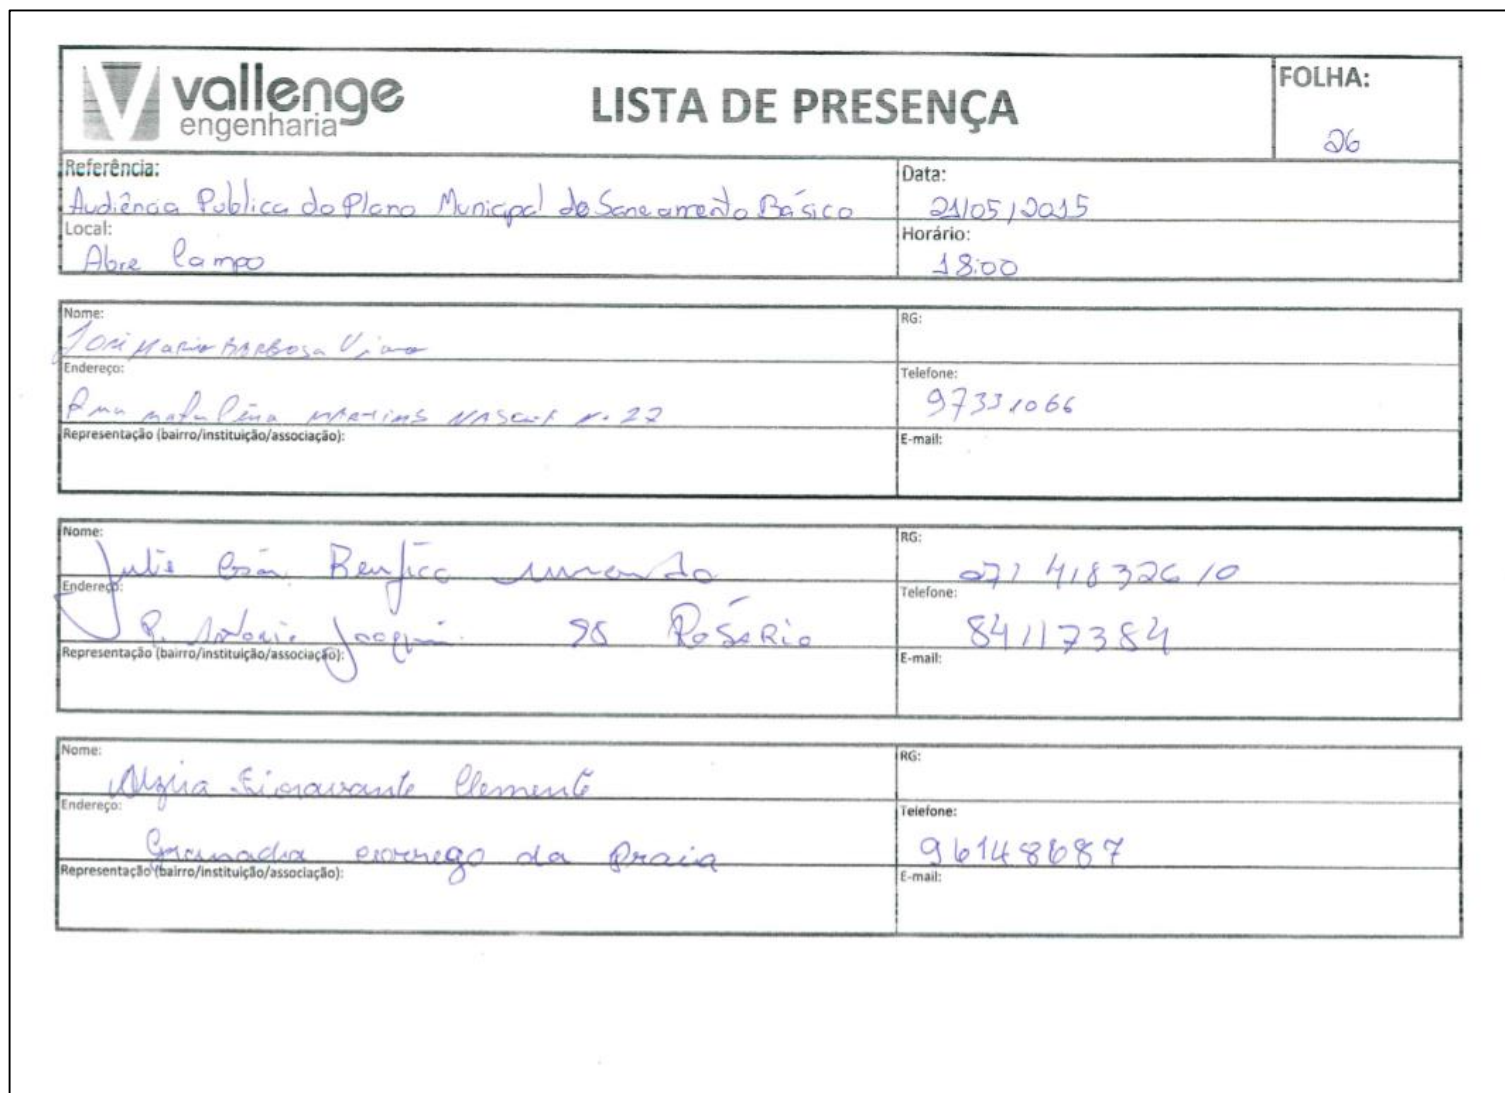 vallenge
engenharia
LISTA DE PRESENÇA
FOLHA:
26
Referência:
Audiência Publica do Plano Municipal de Saneamento Básico
Data:
21/05/2015
Local:
Abre Campo
Horário:
18:00
Nome:
Maria Barbosa
RG:
Endereço:
Martins N. 27
Telefone:
97331066
Representação (bairro/instituição/associação):
E-mail:
Nome:
Benfica
RG:
071 418326 10
Endereço:
R. Antonio Joaquim 98 Rosário
Telefone:
84117384
Representação (bairro/instituição/associação):
E-mail:
Nome:
Alzira Fioravante Clemente
RG:
Endereço:
Granada corrego da Praia
Telefone:
96148687
Representação (bairro/instituição/associação):
E-mail: